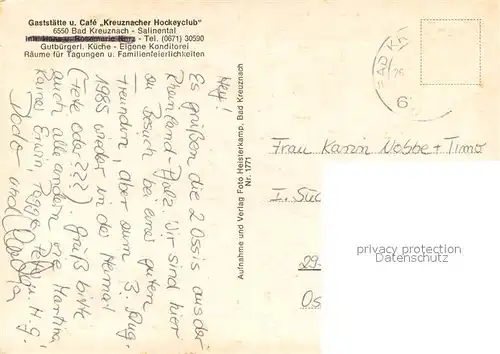 Gaststätte u. Café „Kreuznacher Hockeyclub"
6550 Bad Kreuznach - Salinental
Inh. Hans u. Rosemarie - Tel. (0671) 30590
Gutbürgerl. Küche - Eigene Konditorei
Räume für Tagungen u. Familienfeierlichkeiten
Hey!
Es grüßen die 2 Ossis aus der
Rheinland-Pfalz. Wir sind hier
zu Besuch bei einer guten
Freundin, aber zum 3. Aug.
1985 wieder in der Heimat
(Freie oda ???). Grüß bitte
auch alle andern wie Martina
Rainer, Erwin, Peggy u. H.G.!
Dodo und
Aufnahme und Verlag Foto Heisterkamp, Bad Kreuznach
Nr. 1771
BAD K
6
Frau Karin Nobbe + Timo
I. Süd
29-
Os
privacy protection
DELCAMPE